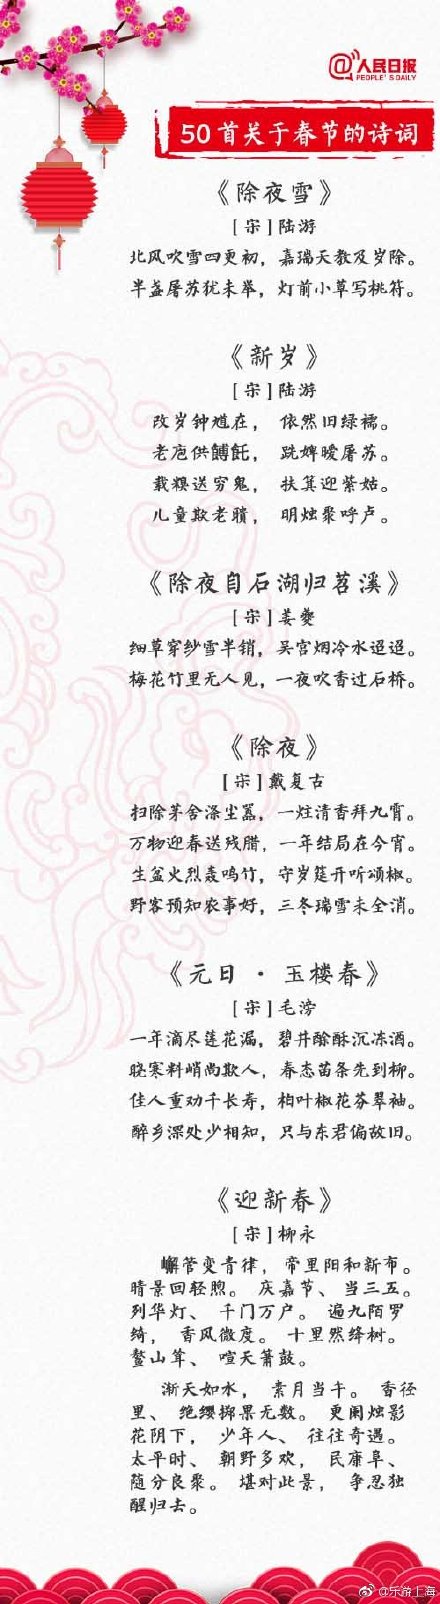 @人民日报
PEOPLE'S DAILY
50首关于春节的诗词
《除夜雪》
[宋]陆游
北风吹雪四更初，嘉瑞天教及岁除。
半盏屠苏犹未举，灯前小草写桃符。
《新岁》
[宋]陆游
改岁钟馗在， 依然旧绿襦。
老庖供餺飥， 跣婢暖屠苏。
载糗送穷鬼， 扶箕迎紫姑。
儿童欺老聩， 明烛聚呼卢。
《除夜自石湖归苕溪》
[宋]姜夔
细草穿纱雪半销，吴宫烟冷水迢迢。
梅花竹里无人见，一夜吹香过石桥。
《除夜》
[宋]戴复古
扫除茅舍涤尘嚣，一炷清香拜九霄。
万物迎春送残腊，一年结局在今宵。
生盆火烈轰鸣竹，守岁筵开听颂椒。
野客预知农事好，三冬瑞雪未全消。
《元日·玉楼春》
[宋]毛滂
一年滴尽莲花漏，碧井酴酥沉冻酒。
晓寒料峭尚欺人，春态苗条先到柳。
佳人重劝千长寿，柏叶椒花芬翠袖。
醉乡深处少相知，只与东君偏故旧。
《迎新春》
[宋]柳永
嶰管变青律，帝里阳和新布。
晴景回轻煦。 庆嘉节、当三五。
列华灯、 千门万户。 遍九陌罗
绮， 香风微度。 十里然绛树。
鳌山耸、 喧天箫鼓。
渐天如水， 素月当午。 香径
里、 绝缨掷果无数。 更阑烛影
花阴下， 少年人、 往往奇遇。
太平时、 朝野多欢， 民康阜、
随分良聚。 堪对此景， 争忍独
醒归去。
@乐游上海